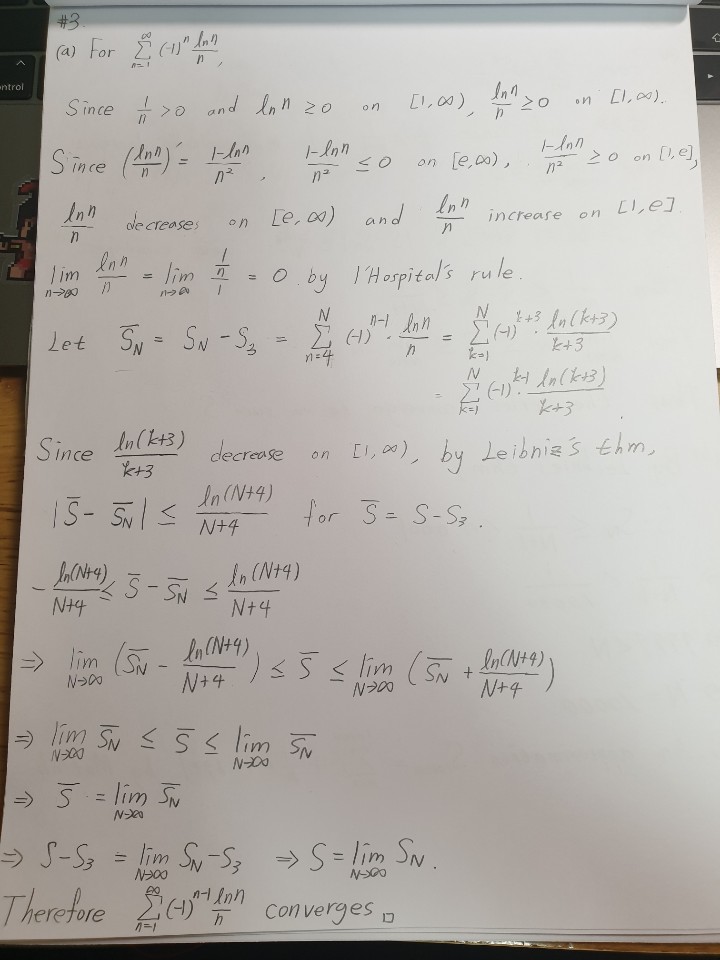 #3.
(a) For \sum_{n=1}^{\infty} (-1)^n \frac{ln n}{n},
Since \frac{1}{n} > 0 and ln n ≥ 0 on [1, ∞), \frac{ln n}{n} ≥ 0 on [1, ∞).
Since (\frac{ln n}{n})' = \frac{1-ln n}{n^2}, \frac{1-ln n}{n^2} ≤ 0 on [e, ∞), \frac{1-ln n}{n^2} ≥ 0 on [1, e],
\frac{ln n}{n} decreases on [e, ∞) and \frac{ln n}{n} increase on [1, e].
\lim_{n→∞} \frac{ln n}{n} = \lim_{n→∞} \frac{\frac{1}{n}}{1} = 0 by l'Hospital's rule.
Let \bar{S}_N = S_N - S_3 = \sum_{n=4}^{N} (-1)^{n-1} · \frac{ln n}{n} = \sum_{k=1}^{N} (-1)^{k+3} · \frac{ln(k+3)}{k+3}
= \sum_{k=1}^{N} (-1)^{k-1} · \frac{ln(k+3)}{k+3}.
Since \frac{ln(k+3)}{k+3} decrease on [1, ∞), by Leibniz's thm,
|\bar{S} - \bar{S}_N| ≤ \frac{ln(N+4)}{N+4} for \bar{S} = S - S_3.
-\frac{ln(N+4)}{N+4} ≤ \bar{S} - \bar{S}_N ≤ \frac{ln(N+4)}{N+4}
⇒ \lim_{N→∞} (\bar{S}_N - \frac{ln(N+4)}{N+4}) ≤ \bar{S} ≤ \lim_{N→∞} (\bar{S}_N + \frac{ln(N+4)}{N+4})
⇒ \lim_{N→∞} \bar{S}_N ≤ \bar{S} ≤ \lim_{N→∞} \bar{S}_N
⇒ \bar{S} = \lim_{N→∞} \bar{S}_N
⇒ S - S_3 = \lim_{N→∞} S_N - S_3 ⇒ S = \lim_{N→∞} S_N.
Therefore \sum_{n=1}^{∞} (-1)^{n-1} \frac{ln n}{n} converges. □